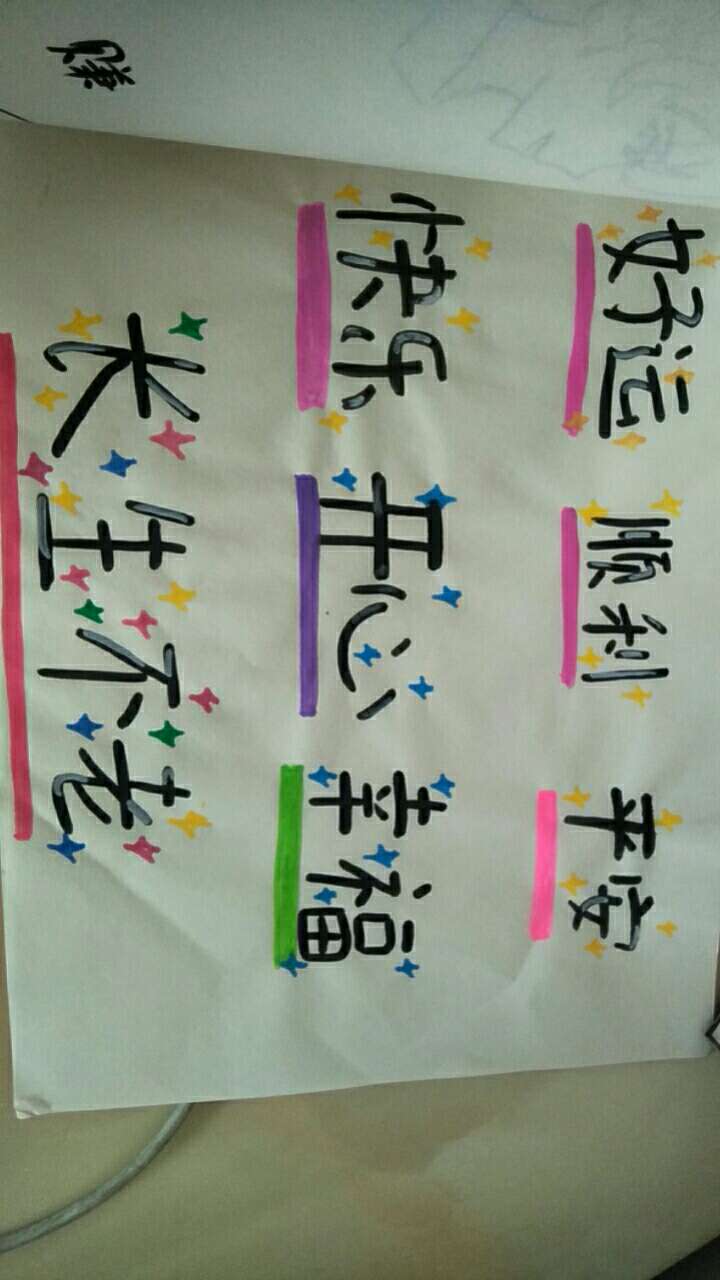 赚
好运 顺利 平安
快乐 开心 幸福
长生不老